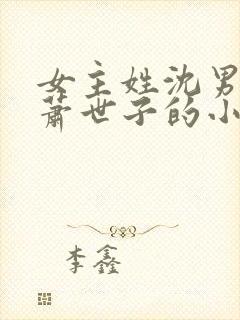 女主姓沈男
萧世子的小
李鑫